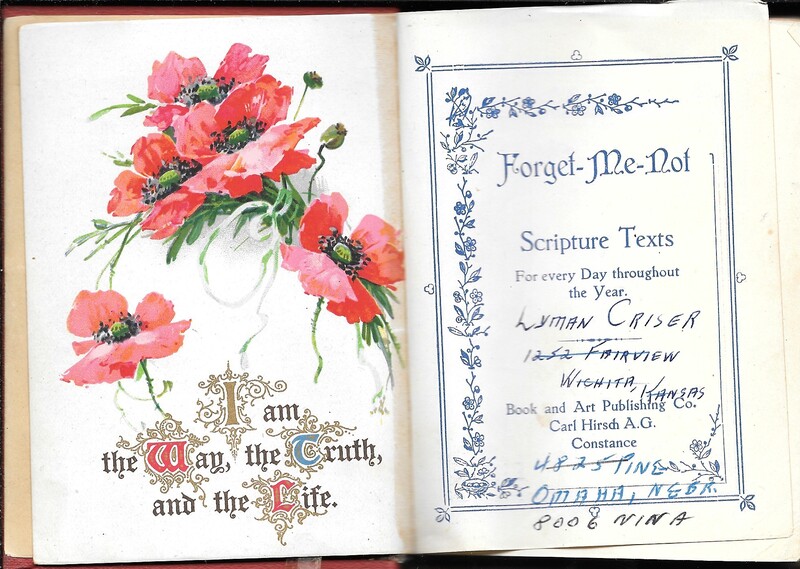 I am
the Way, the Truth,
and the Life.
Forget-Me-Not
Scripture Texts
For every Day throughout
the Year.
LYMAN CRISER
1252 FAIRVIEW
WICHITA, KANSAS
Book and Art Publishing Co.
Carl Hirsch A.G.
Constance
4825 PINE
OMAHA, NEBR.
8006 NINA